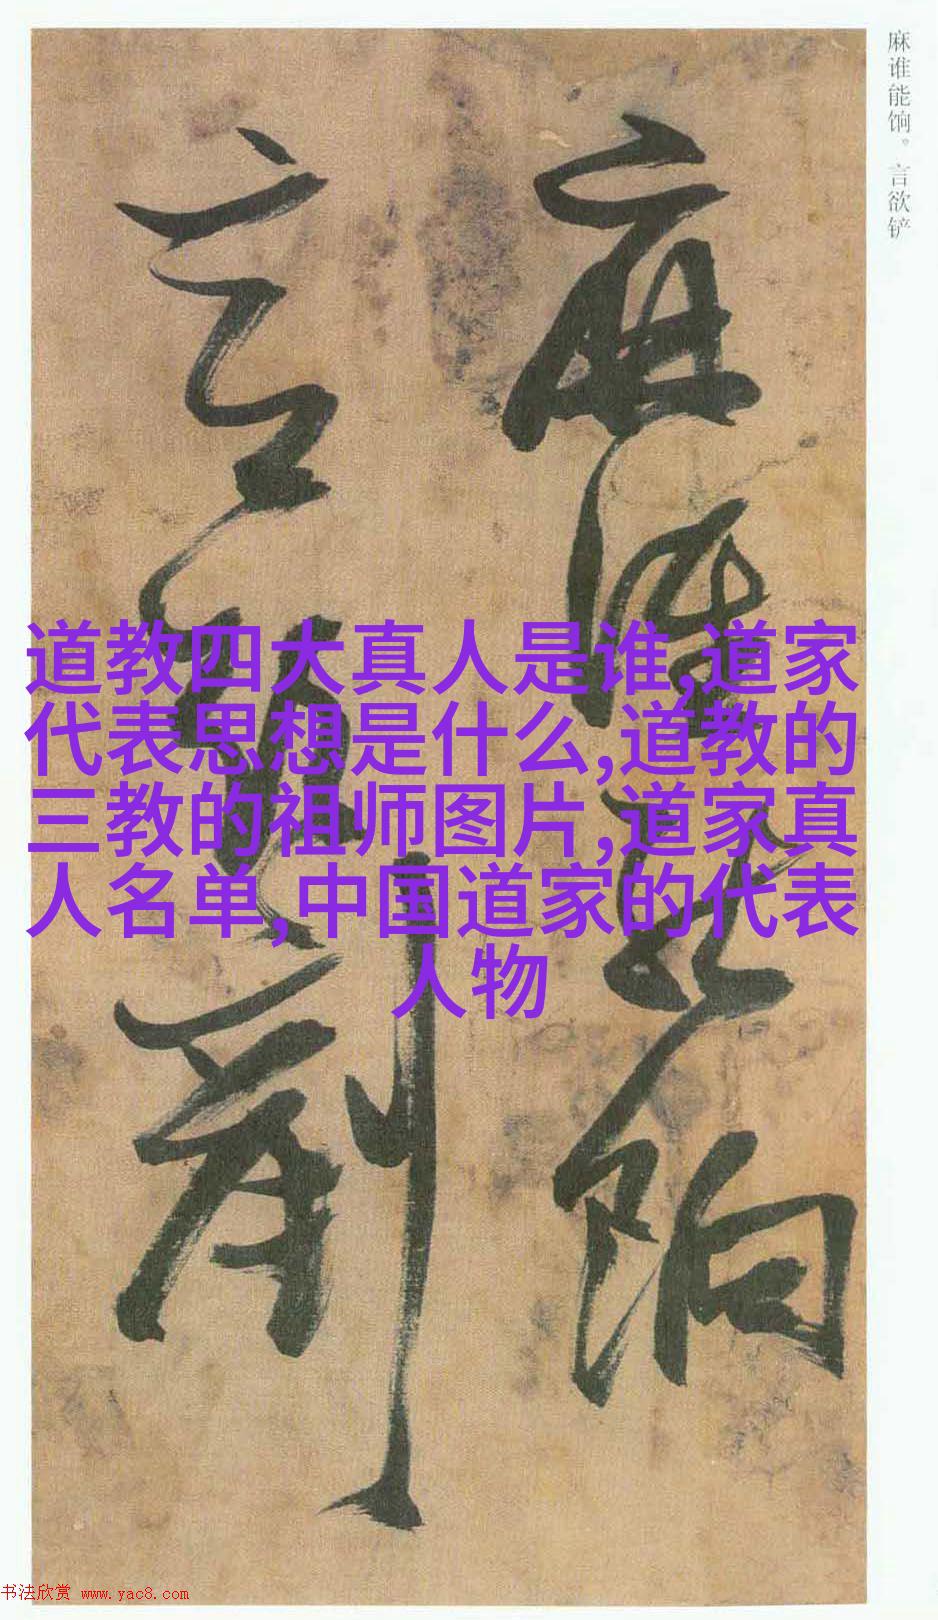 麻谁能饷。言欲铲
麻谁能饷
言欲铲
道教四大真人是谁,道家
代表思想是什么,道教的
三教的祖师图片,道家真
人名单,中国道家的代表
人物
书法欣赏 www.yac8.com